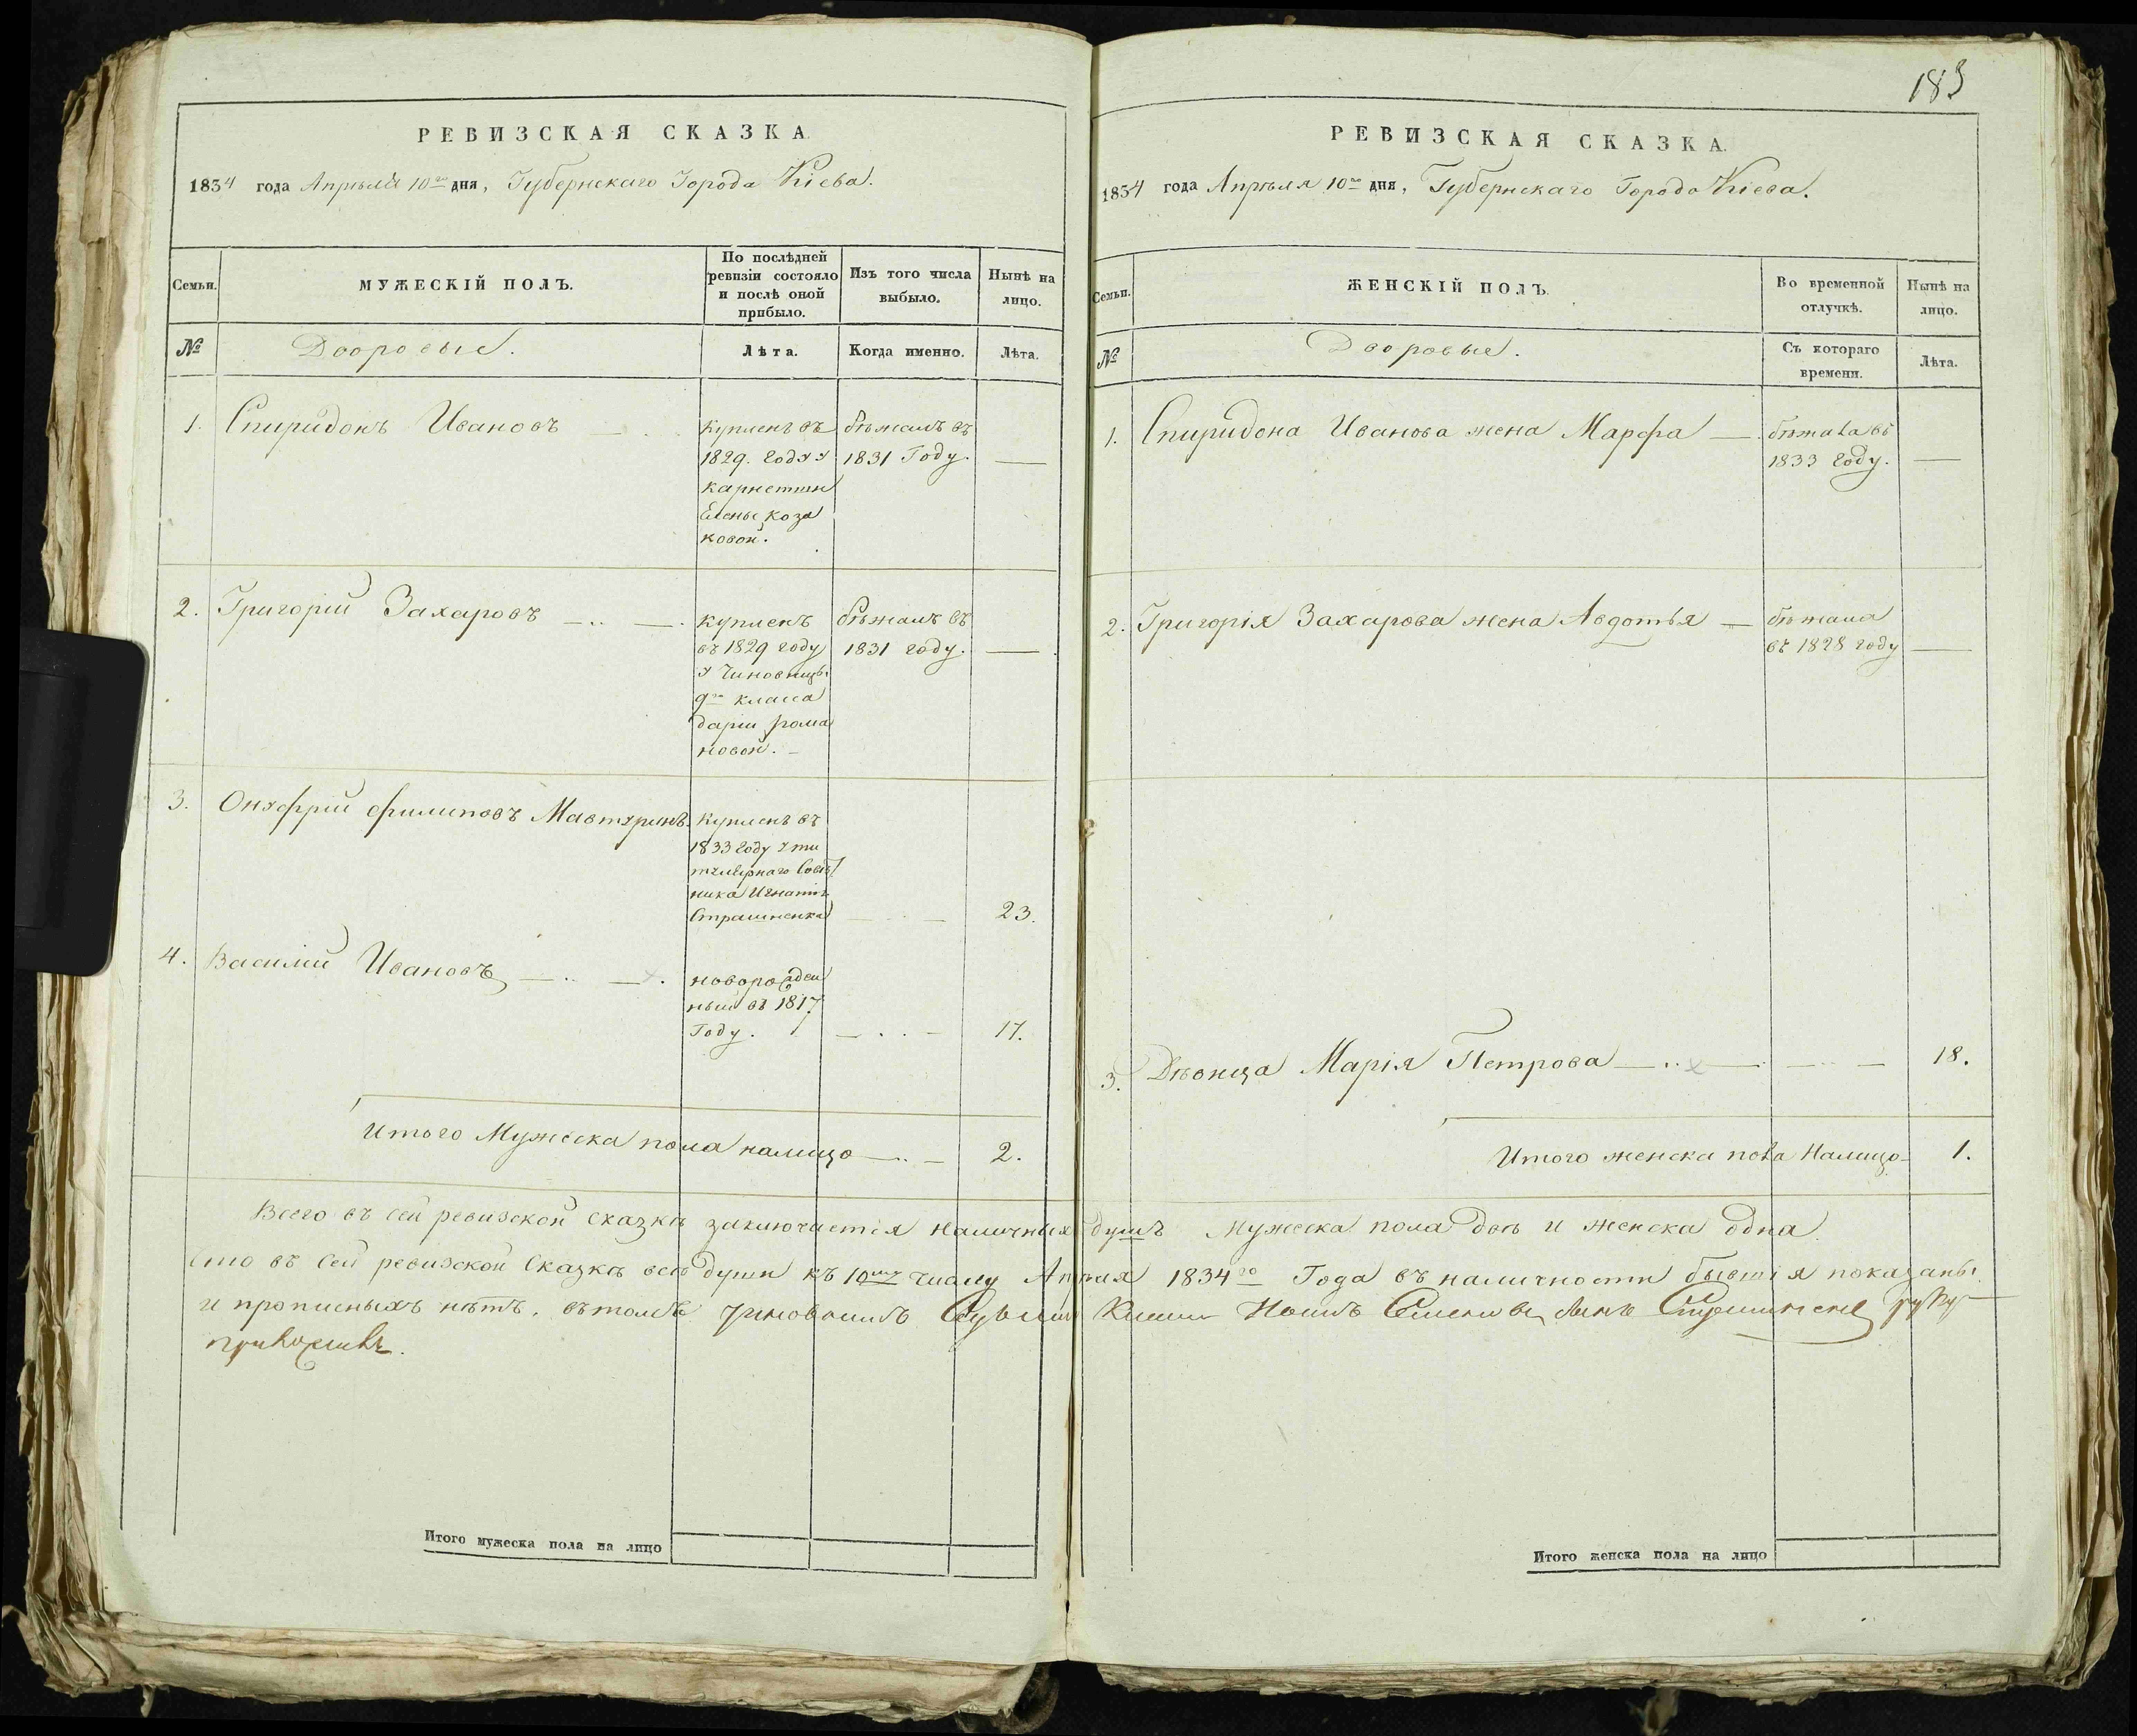 183
РЕВИЗСКАЯ СКАЗКА.
1834 года Апрѣля 10го дня, Губернскаго Города Кіева.
Семьи.
МУЖЕСКІЙ ПОЛЪ.
По послѣдней
ревизіи состояло
и послѣ оной
прибыло.
Изъ того числа
выбыло.
Нынѣ на
лицо.
№
Дворовые.
Лѣта.
Когда именно.
Лѣта.
1. Спиридонъ Ивановъ
купленъ въ
1829. году у
Елены Коза
ковой.
бѣжалъ въ
1831 Году.
2. Григорій Захаровъ
купленъ
въ 1829 году
у Чиновницы
9го класса
Даріи Рома
новой.
бѣжалъ въ
1831 году.
3. Онуфрій Филиповъ
купленъ въ
1833 году у ти
тулярнаго Совѣт
ника Игнатія
23.
4. Василій Ивановъ
новорожден
ный въ 1817
Году.
17.
Итого Мужеска пола налицо 2.
РЕВИЗСКАЯ СКАЗКА.
1834 года Апрѣля 10го дня, Губернскаго Города Кіева.
Семьи.
ЖЕНСКІЙ ПОЛЪ.
Во временной
отлучкѣ.
Нынѣ на
лицо.
№
Дворовые.
Съ котораго
времени.
Лѣта.
1. Спиридона Иванова жена Марфа
бѣжала въ
1833 году.
2. Григорія Захарова жена Авдотья
бѣжала
въ 1828 году
3. Дѣвица Марія Петрова 18.
Итого женска пола Налицо 1.
Всего въ сей ревизской сказкѣ заключается наличныхъ душъ Мужеска пола двѣ и женска одна.
Что въ сей ревизской Сказкѣ всѣ души къ 10му числу Апрѣля 1834го Года въ наличности бывшія показаны
и прописныхъ нѣтъ. въ томъ руку
приложилъ.
Итого мужеска пола на лицо
Итого женска пола на лицо